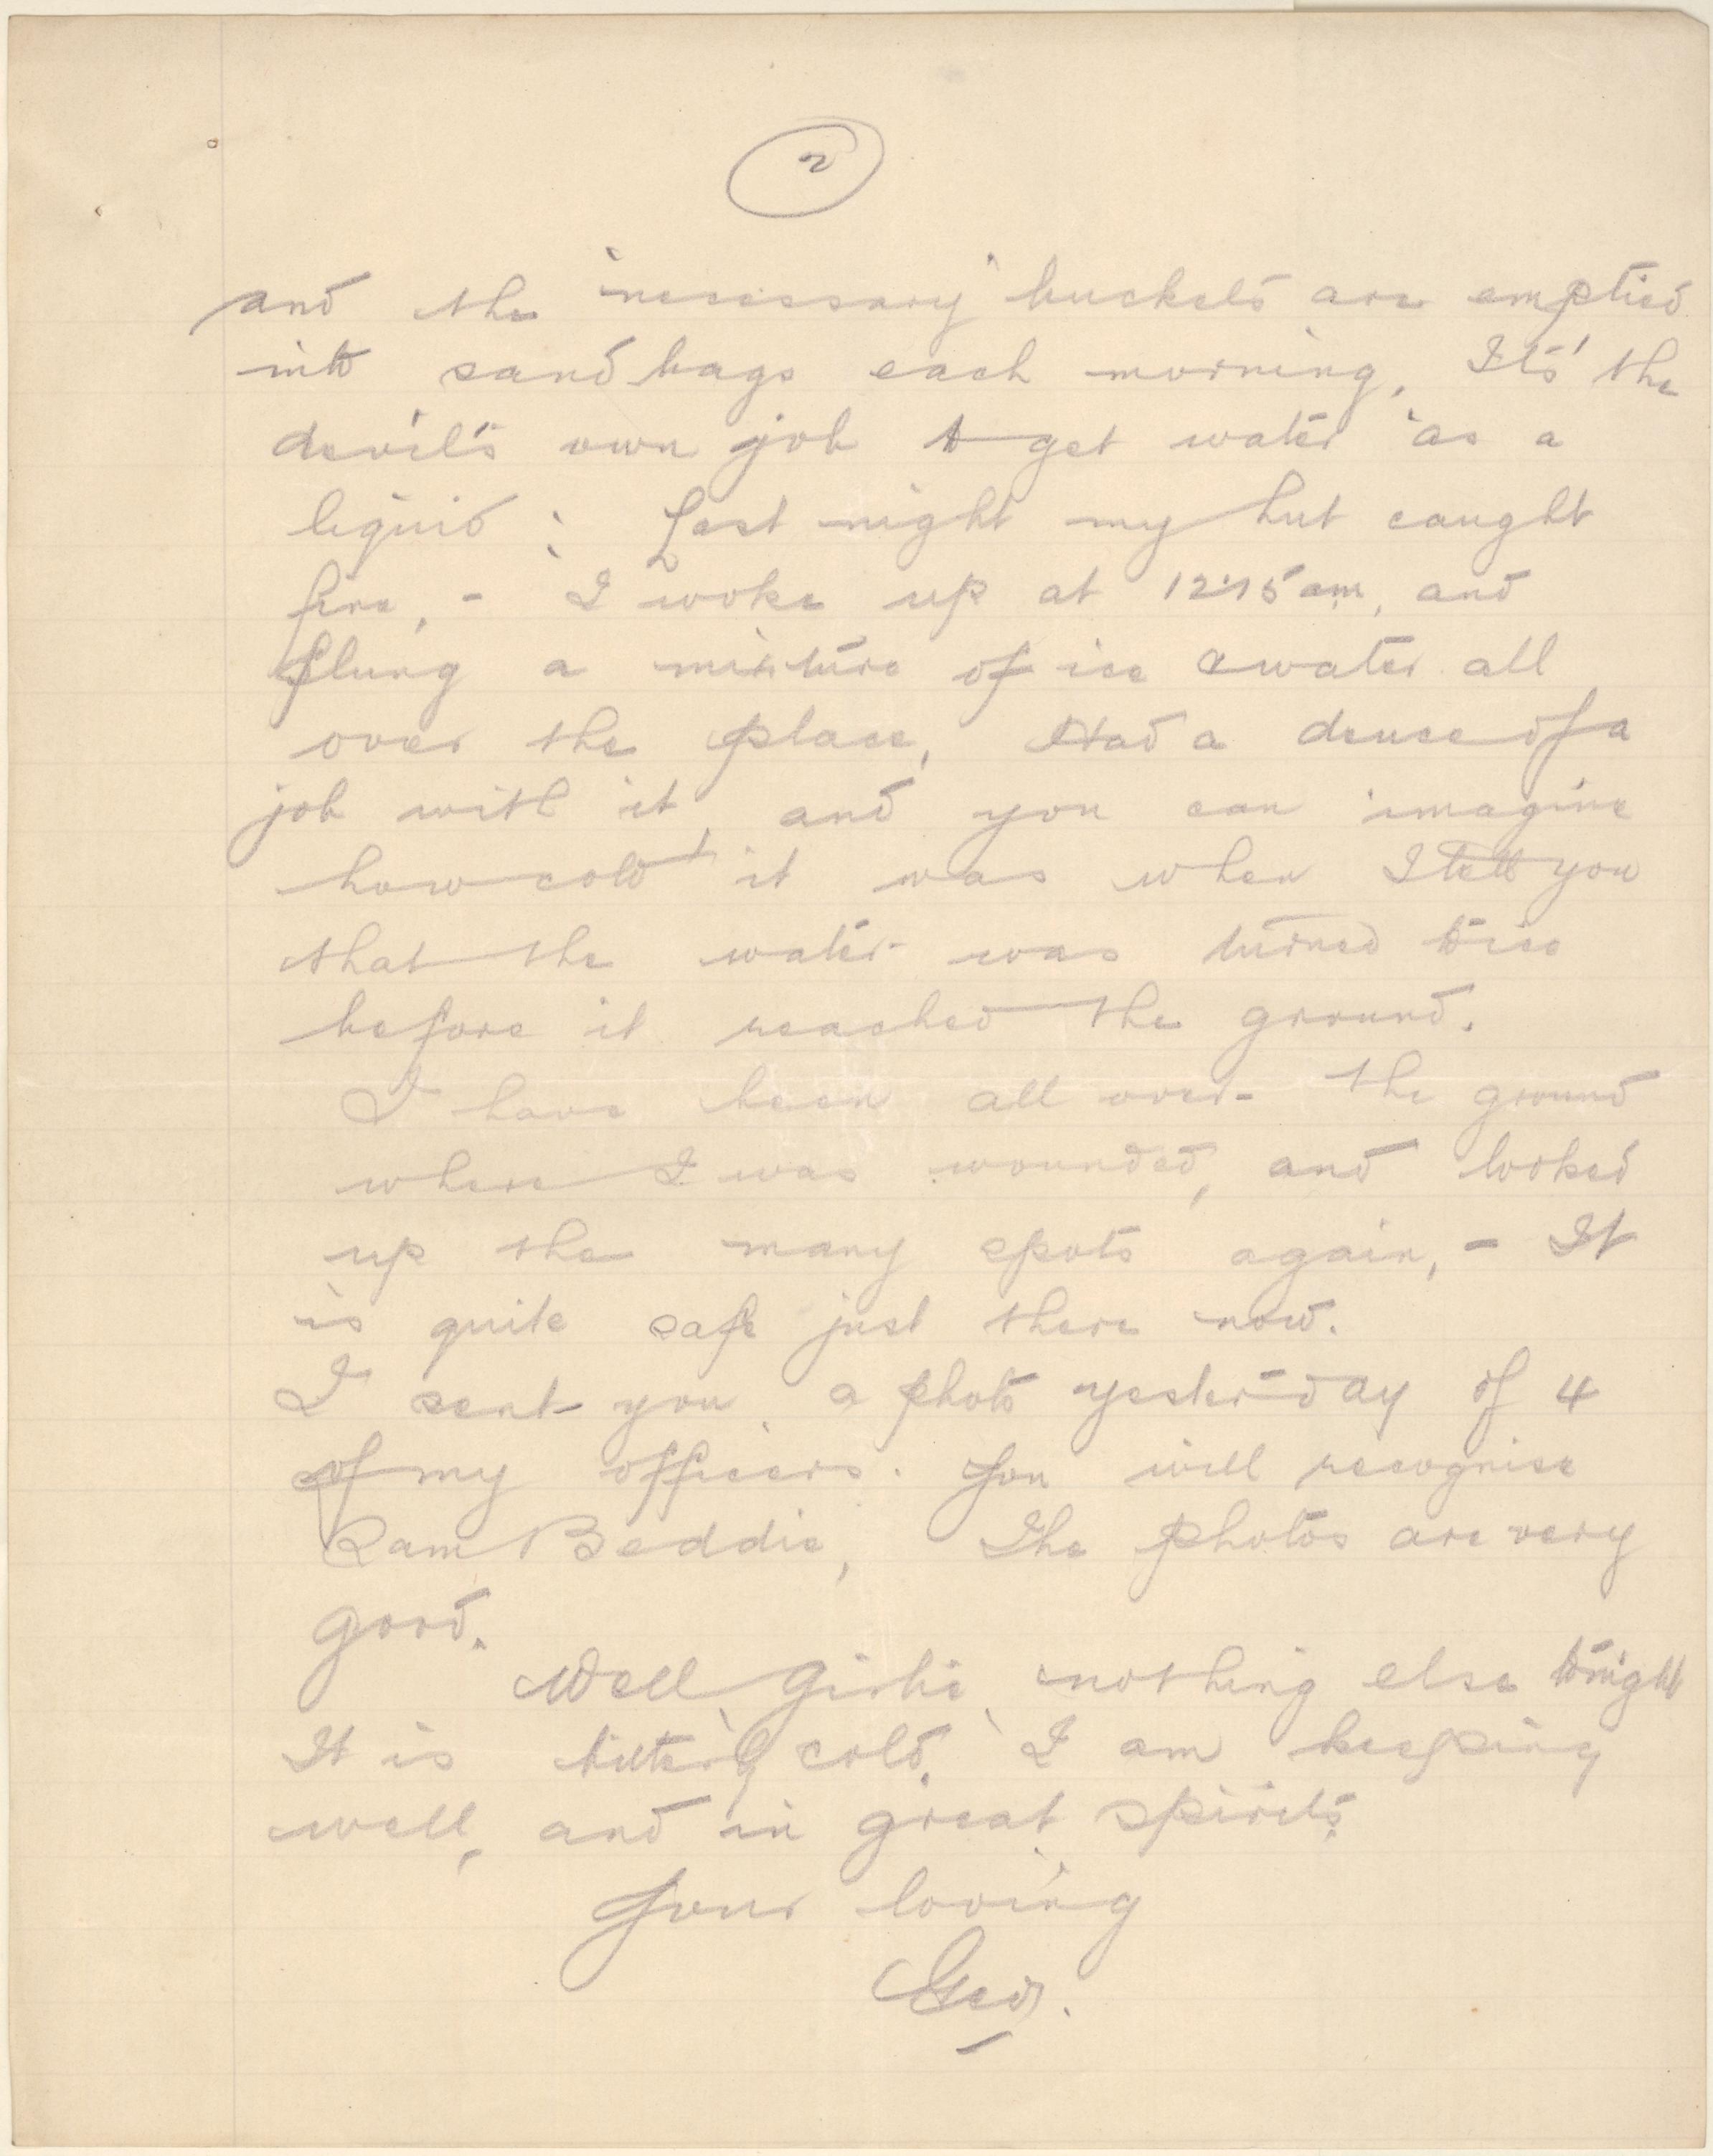 2
and the "necessary" buckets are emptied
into sand bags each morning. Its' the
devil's own job to get water "as a
liquid": Last night my hut caught
fire, - I woke up at 12.15 am, and
flung a mixture of ice & water all
over the place, Had a deuce of a
job with it, and you can imagine
how cold it was when I tell you
that the water was turned to ice
before it reached the ground.
I have been all over the ground
where I was wounded, and looked
up the many spots again, - It
is quite safe just there now.
I sent you a photo yesterday of 4
of my officers. You will recognise
Ram Beddie, The photos are very
good.
Well Girlie, nothing else tonight
It is bitterly cold. I am keeping
well, and in great spirits.
Your loving
Geo.